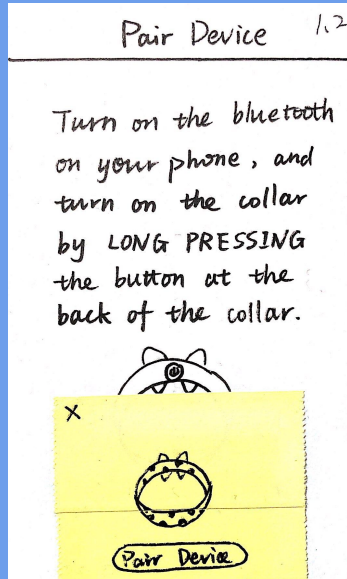 Pair Device
1.2
Turn on the bluetooth
on your phone, and
turn on the collar
by LONG PRESSING
the button at the
back of the collar.
X
Pair Device